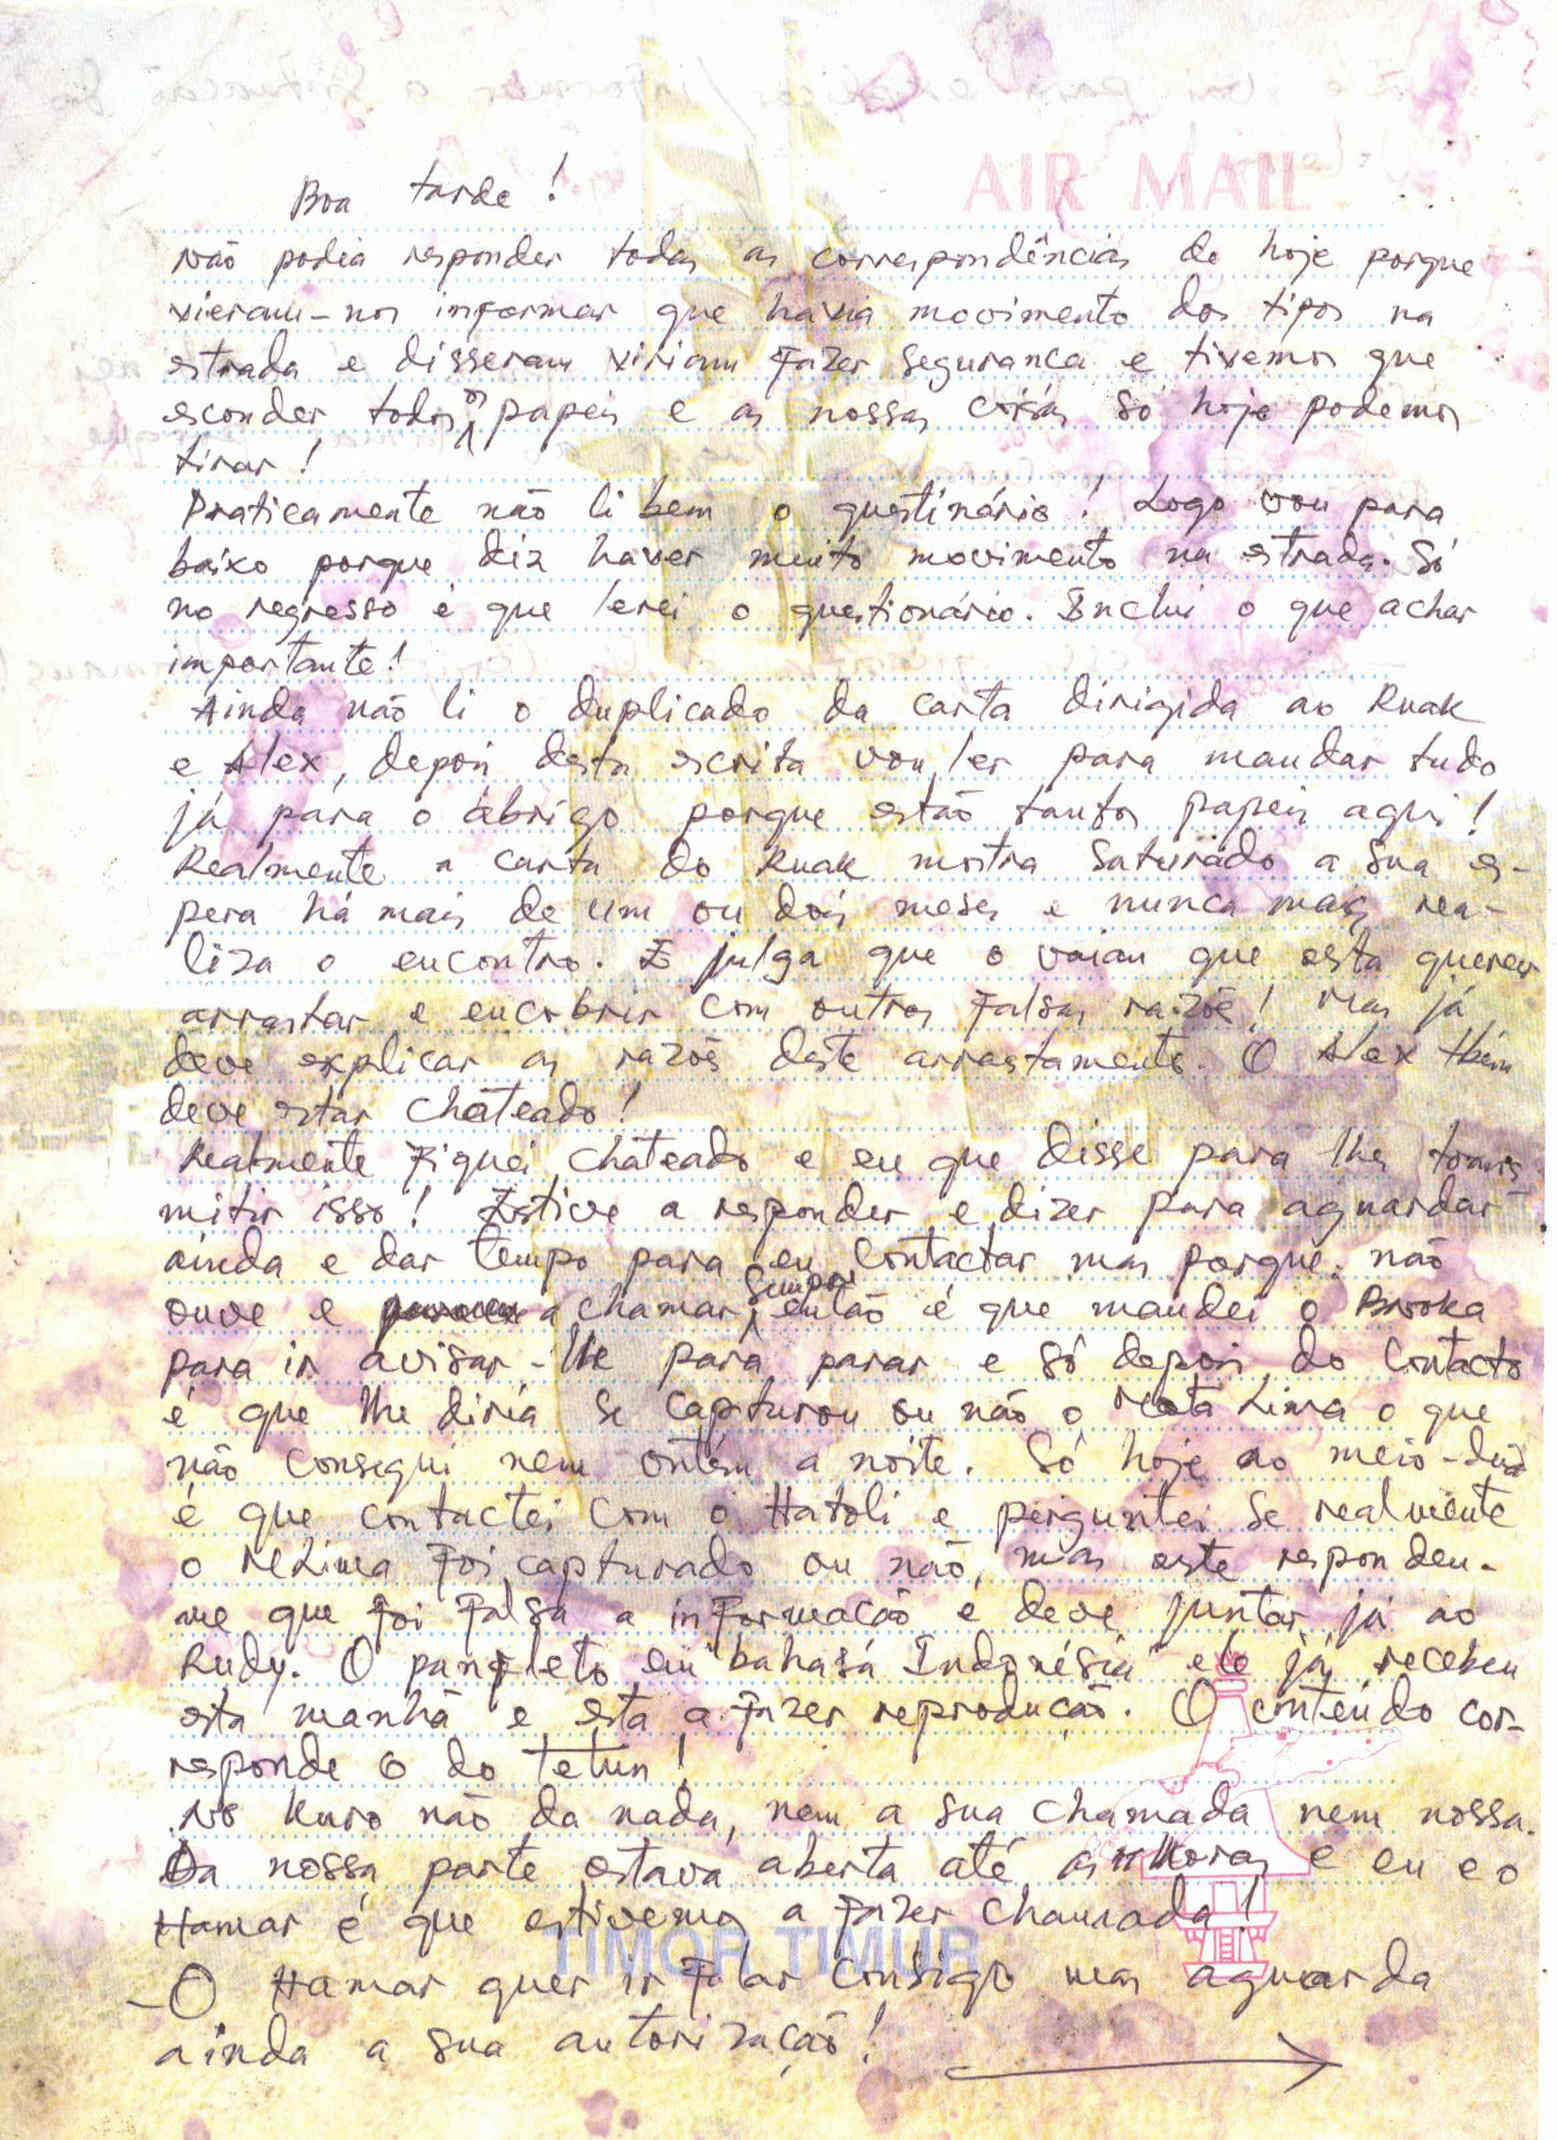 AIR MAIL
Boa tarde!
Não podia responder todas as correspondências de hoje porque
vieram-nos informar que havia movimento dos tipos na
estrada e disseram viriam fazer segurança e tivemos que
esconder todos os papeis e as nossas coisas só hoje podemos
tirar!
Praticamente não li bem o questinário! Logo vou para
baixo porque diz haver muito movimento na estrada. Só
no regresso é que lerei o questionário. Inclui o que achar
importante!
Ainda não li o duplicado da carta dirigida ao Ruak
e Alex, depois desta escrita vou ler para mandar tudo
já para o abrigo porque estão tantos papeis aqui!
Realmente a carta do Ruak mostra saturado a sua es-
pera há mais de um ou dois meses e nunca mais rea-
liza o encontro. E julga que o que está querer
arrastar e encobrir com outros falsas razõe! Mas já
deve explicar as razões deste arrastamento. O Alex tbém
deve estar chateado!
Realmente fiquei chateado e eu que disse para lhes trans
mitir isso! Estive a responder e dizer para aguardar
ainda e dar tempo para eu contactar mas porque não
ouve e a chamar sempre então é que mandei o Broka
para ir avisar-lhe para parar e só depois do contacto
é que lhe diria se capturou ou não o Mata Lima o que
não consegui nem ontem a noite. Só hoje ao meio-dia
é que contactei com o Hatoli e perguntei se realmente
o MLima foi capturado ou não, mas este respondeu-
me que foi falsa a informação e deve juntar já ao
Rudy. O panfleto em "bahasa Indonésia" ele já recebeu
esta manhã e está a fazer reprodução. O conteúdo cor-
responde o do tetun!
No Kuro não da nada, nem a sua chamada nem nossa.
Da nossa parte estava aberta até as 11 horas e eu e o
Hamar é que estivemos a fazer chamada!
TIMOR TIMUR
- O Hamar quer ir falar consigo mas aguarda
ainda a sua autorização!